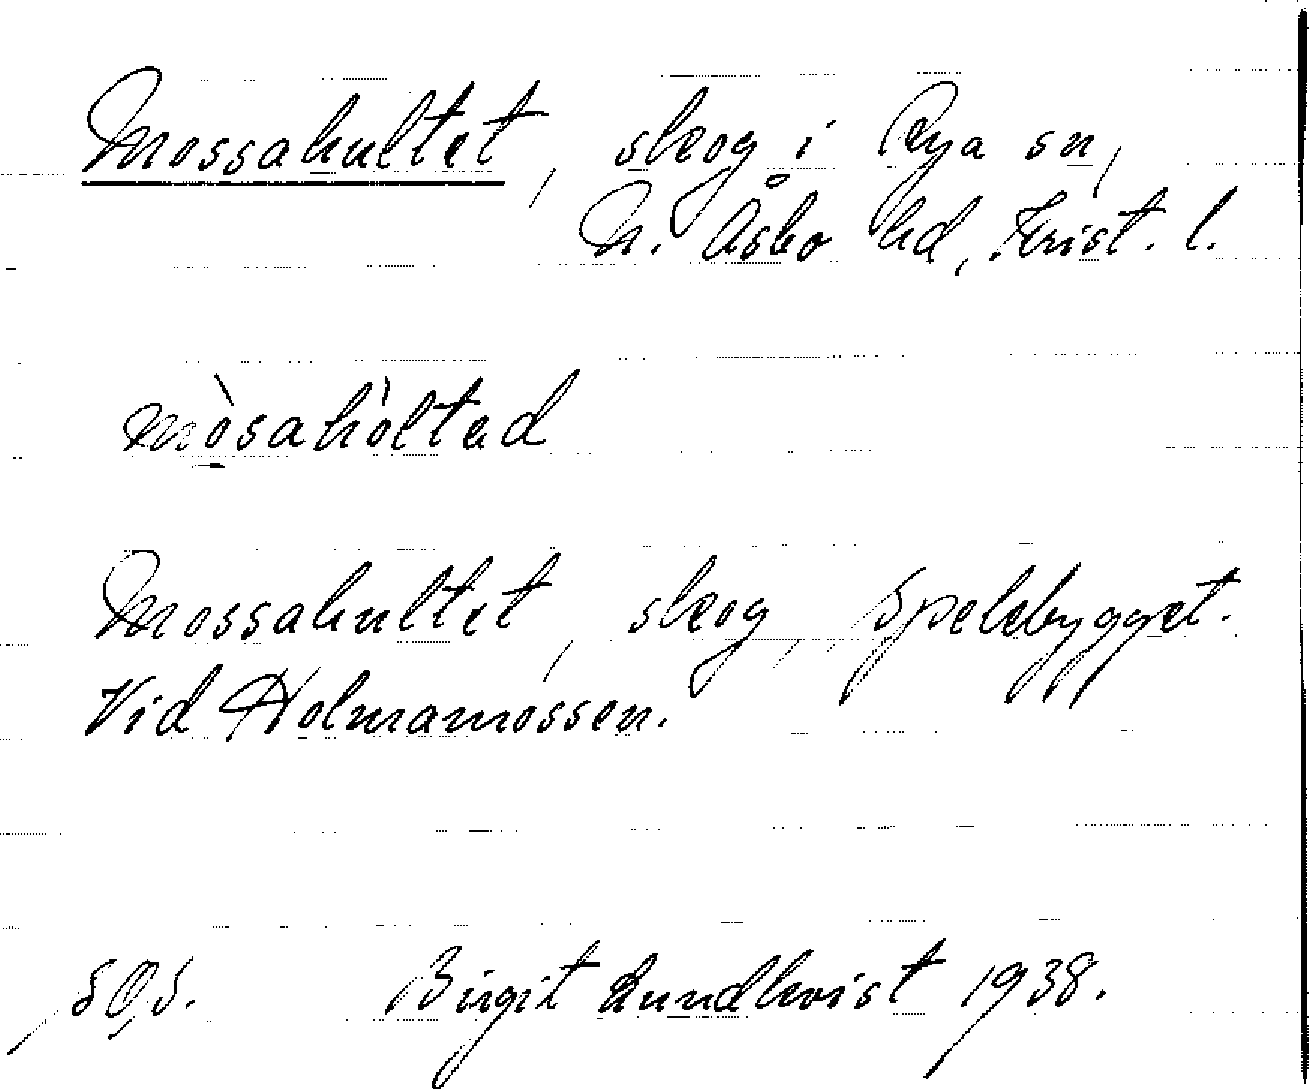 Mossahultet, skog i Rya sn,
N. Åsbo hd, Krist. l.
mò̱sahòltad
Mossahultet, skog, Spelebygget.
Vid Holmamossen.
Birgit Lundkvist 1938.